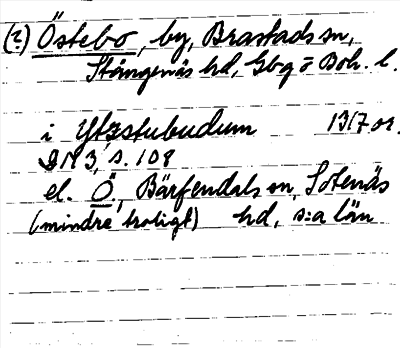 (?) Östebo, by, Brastads sn,
Stångenäs hd, Gbg o Boh. l.
i Ytzstubudum 1317 or.
DN 3, s. 108
el. Ö., Bärfendals sn, Sotenäs
(mindre troligt) hd, s:a län